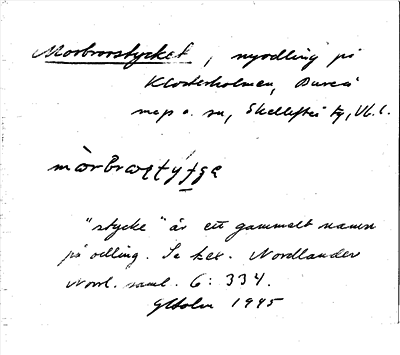 Morbrorstycket, nyodling på
Klosterholmen, Bureå
s:n, Skellefteå tg, Vb. l.
"stycke" är ett gammalt namn
på odling. Se här. Nordlander
Norrl. saml. 6: 334.
GHolm 1945